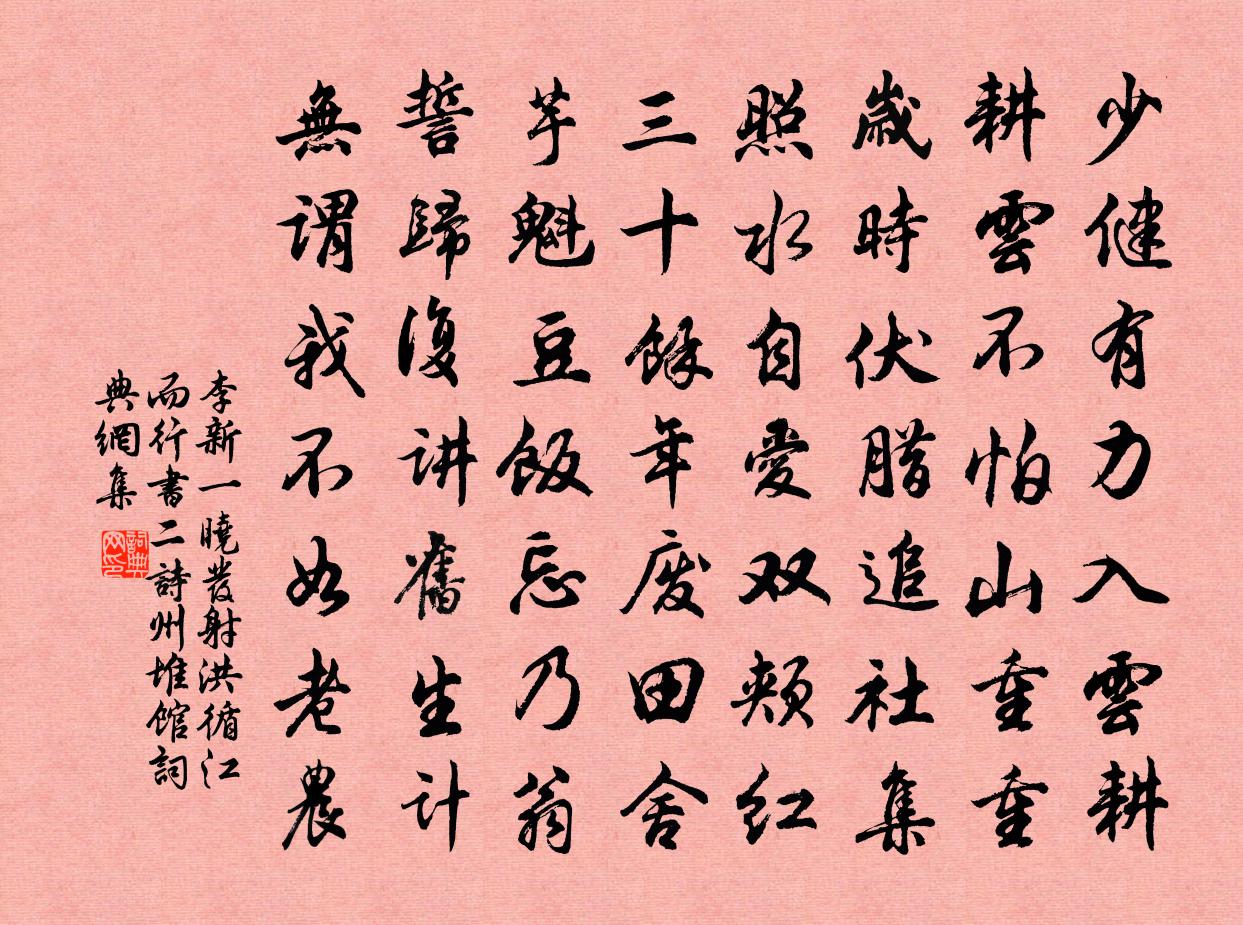 少健有力入雲耕
耕雲不怕山重重
歲時伏腊追社集
照水自愛双頰红
三十餘年废田舍
芋魁豆飯忘乃翁
誓歸復讲舊生计
無谓我不如老農
李新一曉发射洪循江
而行書二詩州堆馆詞
典網集
詞典网印